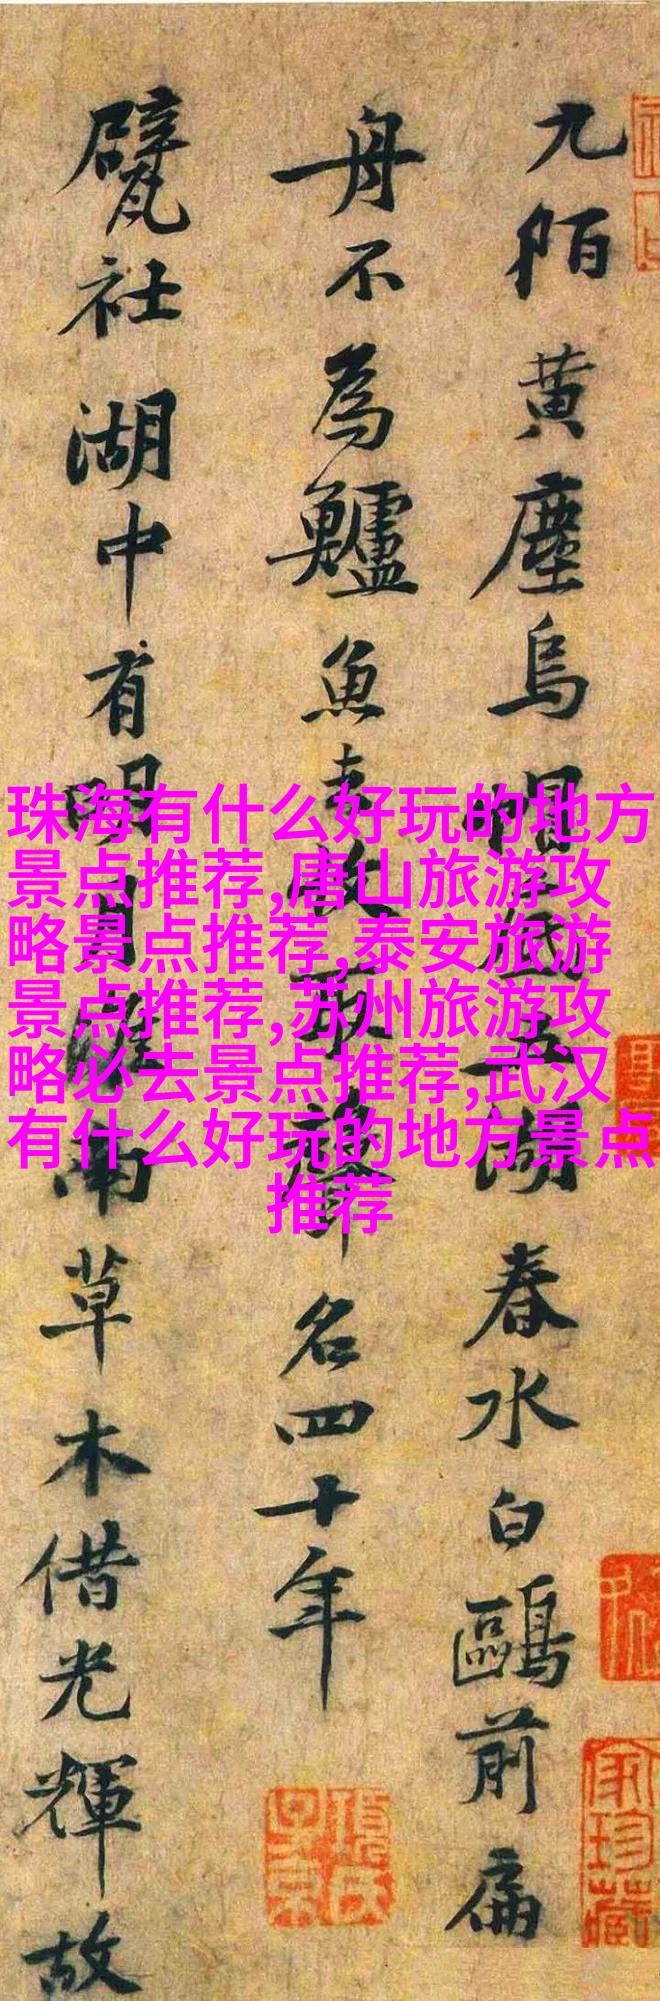 九陌黃塵烏帽底五湖春水白鷗前扁
舟不為鱸魚去收取聲名四十年
甓社湖中有明月淮南草木借光輝故
珠海有什么好玩的地方
景点推荐,唐山旅游攻
略景点推荐,泰安旅游
景点推荐,苏州旅游攻
略必去景点推荐,武汉
有什么好玩的地方景点
推荐
項氏子京
家珍藏